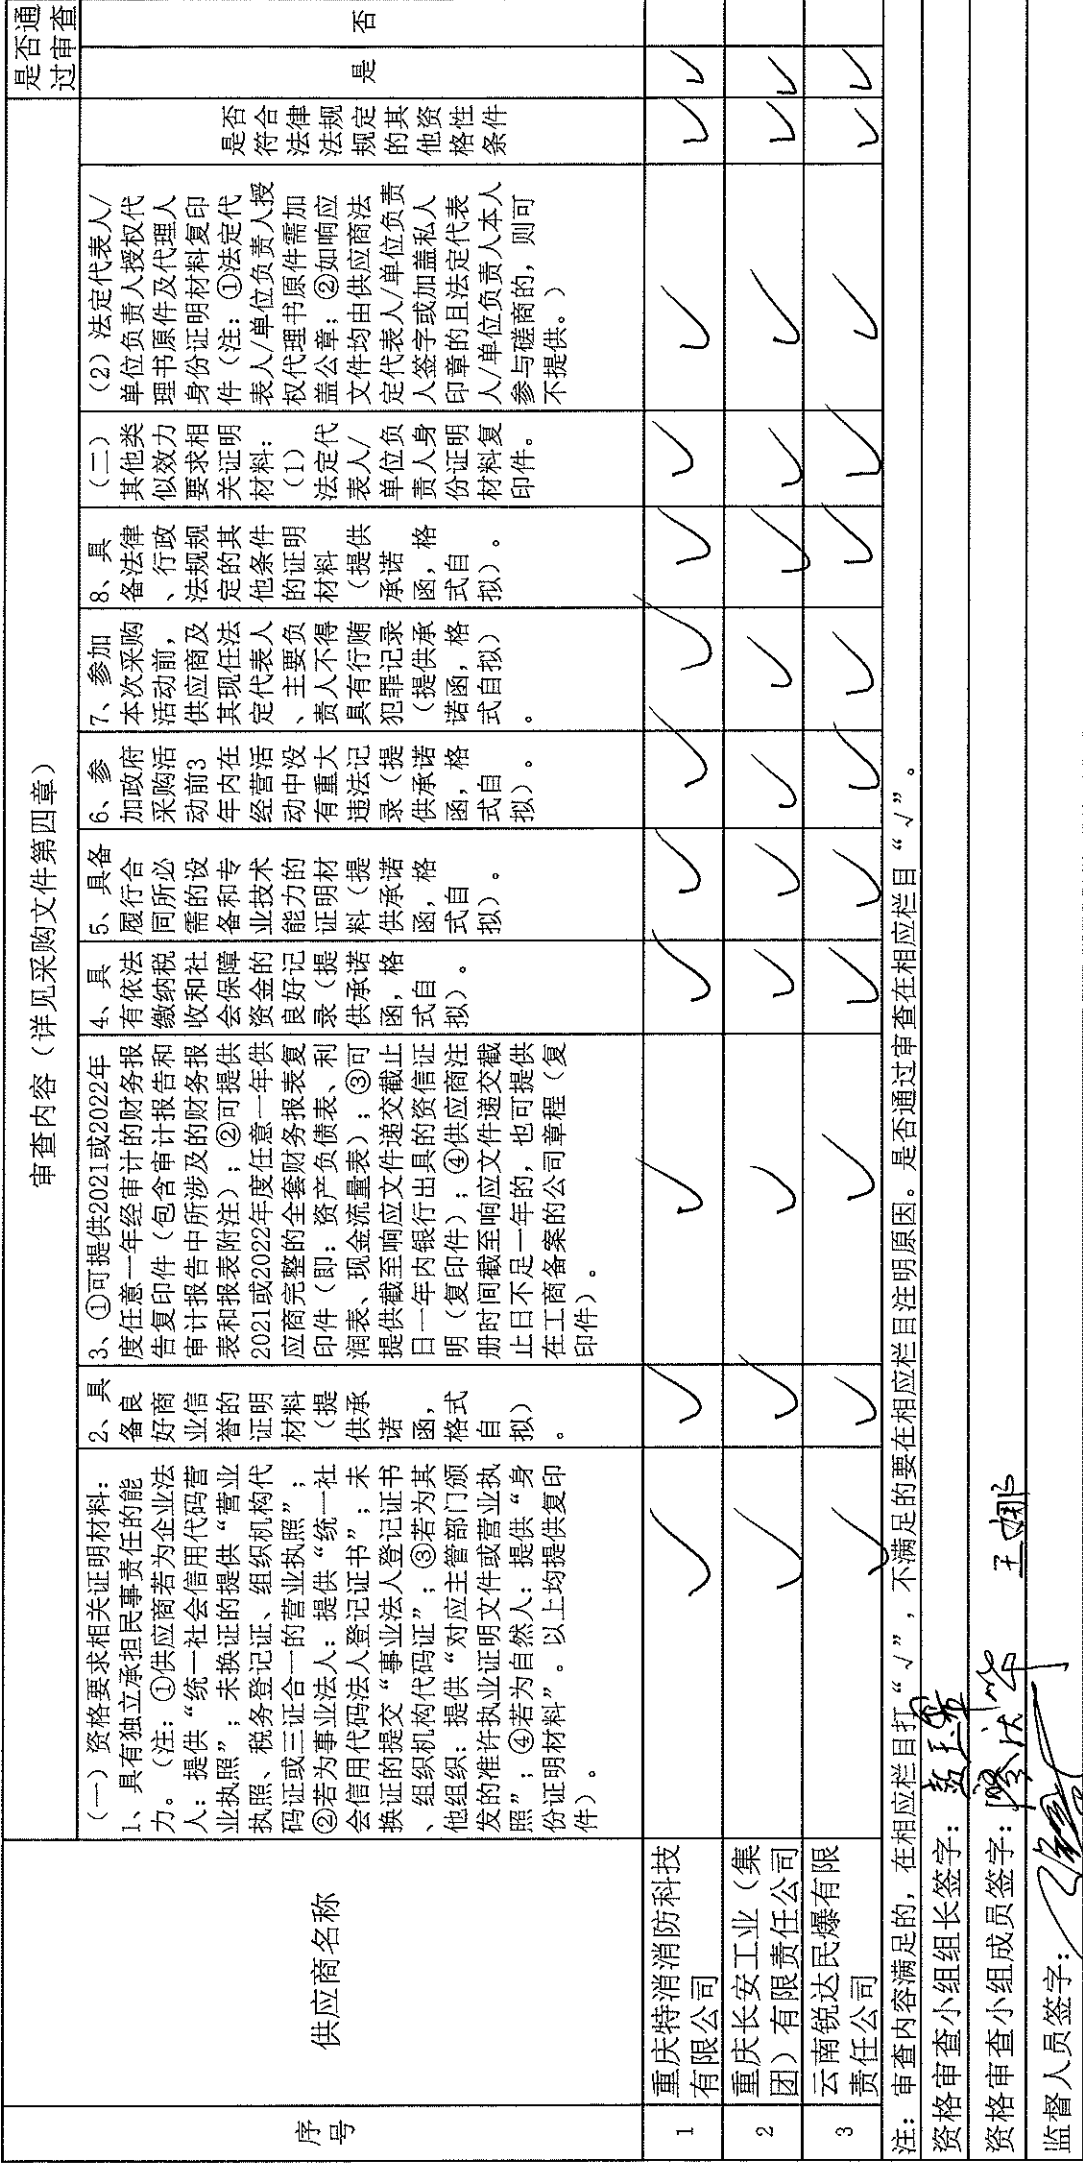 序号
供应商名称
审查内容（详见采购文件第四章）
是否通
过审查
（一）资格要求相关证明材料：
1、具有独立承担民事责任的能
力。（注：①供应商若为企业法
人：提供“统一社会信用代码营
业执照”；未换证的提供“营业
执照、税务登记证、组织机构代
码证或三证合一的营业执照”；
②若为事业法人：提供“统一社
会信用代码法人登记证书”；未
换证的提交“事业法人登记证书
、组织机构代码证”；③若为其
他组织：提供“对应主管部门颁
发的准许执业证明文件或营业执
照”；④若为自然人：提供“身
份证明材料”。以上均提供复印
件）。
2、具
备良
好商
业信
誉的
证明
材料
（提
供承
诺
函，
格式
自
拟）
。
3、①可提供2021或2022年
度任意一年经审计的财务报
告复印件（包含审计报告和
审计报告中所涉及的财务报
表和报表附注）；②可提供
2021或2022年度任意一年供
应商完整的全套财务报表复
印件（即：资产负债表、利
润表、现金流量表）；③可
提供截至响应文件递交截止
日一年内银行出具的资信证
明（复印件）；④供应商注
册时间截至响应文件递交截
止日不足一年的，也可提供
在工商备案的公司章程（复
印件）。
4、具
有依法
缴纳税
收和社
会保障
资金的
良好记
录（提
供承诺
函，格
式自
拟）。
5、具备
履行合
同所必
需的设
备和专
业技术
能力的
证明材
料（提
供承诺
函，格
式自
拟）。
6、参
加政府
采购活
动前3
年内在
经营活
动中没
有重大
违法记
录（提
供承诺
函，格
式自
拟）。
7、参加
本次采购
活动前，
供应商及
其现任法
定代表人
、主要负
责人不得
具有行贿
犯罪记录
（提供承
诺函，格
式自拟）
。
8、具
备法律
、行政
法规规
定的其
他条件
的证明
材料
（提供
承诺
函，格
式自
拟）。
（二）
其他类
似效力
要求相
关证明
材料：
（1）
法定代
表人/
单位负
责人身
份证明
材料复
印件。
（2）法定代表人/
单位负责人授权代
理书原件及代理人
身份证明材料复印
件（注：①法定代
表人/单位负责人授
权代理书原件需加
盖公章；②如响应
文件均由供应商法
定代表人/单位负责
人签字或加盖私人
印章的且法定代表
人/单位负责人本人
参与磋商的，则可
不提供。）
是否
符合
法律
法规
规定
的其
他资
格性
条件
是
否
1
重庆特消消防科技
有限公司
√ √ √ √ √ √ √ √ √ √ √ √
2
重庆长安工业（集
团）有限责任公司
√ √ √ √ √ √ √ √ √ √ √ √
3
云南锐达民爆有限
责任公司
√ √ √ √ √ √ √ √ √ √ √ √
注：审查内容满足的，在相应栏目打“√”，不满足的要在相应栏目注明原因。是否通过审查在相应栏目“√”。
资格审查小组组长签字：
资格审查小组成员签字： 王娜
监督人员签字：